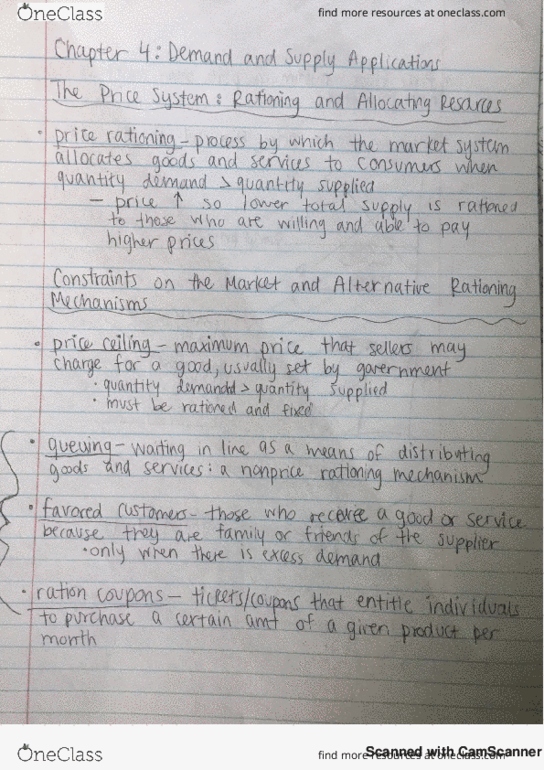 OneClass
find more resources at oneclass.com
Chapter 4: Demand and Supply Applications
The Price System: Rationing and Allocating Resources
• price rationing - process by which the market system
allocates goods and services to consumers when
quantity demand > quantity supplied
- price ↑ so lower total supply is rationed
to those who are willing and able to pay
higher prices
Constraints on the Market and Alternative Rationing
Mechanisms
• price ceiling - maximum price that sellers may
charge for a good, usually set by government
• quantity demanded > quantity supplied
• must be rationed and fixed
• queuing - waiting in line as a means of distributing
goods and services: a nonprice rationing mechanism
• favored customers - those who receive a good or service
because they are family or friends of the supplier
• only when there is excess demand
• ration coupons - tickets/coupons that entitle individuals
to purchase a certain amt of a given product per
month
OneClass
find more resources at oneclass.com
Scanned with CamScanner